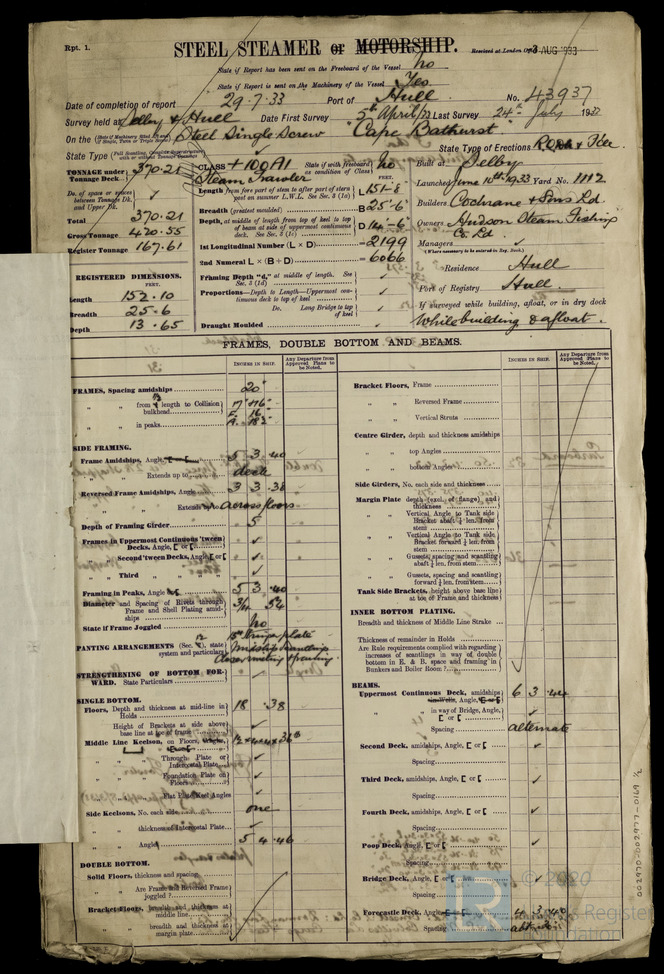 Rpt. 1.
STEEL STEAMER or MOTORSHIP.
Received at London Office AUG 1933
State if Report has been sent on the Freeboard of the Vessel No
State if Report is sent on the Machinery of the Vessel Yes
Date of completion of report 29.7.33 Port of Hull No. 43937
Survey held at Selby & Hull Date First Survey 5th April/33 Last Survey 24th July 1933
On the Steel Single Screw "Cape Bathurst"
State Type of Erections
State Type
CLASS +100A1
Steam Trawler
State if with freeboard as condition of Class No
TONNAGE under Tonnage Deck 370.21
Do. of space or spaces between Tonnage Dk. and Upper Dk. ✓
Total 370.21
Gross Tonnage 420.55
Register Tonnage 167.61
REGISTERED DIMENSIONS.
FEET.
Length 152.10
Breadth 25.6
Depth 13.65
Length from fore part of stem to after part of stern post on summer L.W.L. See Sec. 3 (1a) L 151-8
Breadth (greatest moulded) B 25'-6"
Depth, at middle of length from top of keel to top of beam at side of uppermost continuous deck. See Sec. 3 (1c) D 14'-6"
1st Longitudinal Number (L × D) = 2199
2nd Numeral L × (B + D) = 6066
Framing Depth "d," at middle of length. See Sec. 3 (1d) ✓
Proportions—Depth to Length—Uppermost continuous deck to top of keel ✓
Do. Long Bridge to top of keel ✓
Draught Moulded ✓
Built at Selby
Launched June 10th 1933 Yard No. 1112
Builders Cochrane & Sons Ld.
Owners Hudson Steam Fishing Co. Ld.
Managers ✓
(Where necessary to be entered in Reg. Book.)
Residence Hull
Port of Registry Hull
If surveyed while building, afloat, or in dry dock
While building & afloat.
FRAMES, DOUBLE BOTTOM AND BEAMS.
INCHES IN SHIP.
Any Departure from Approved Plans to be Noted.
INCHES IN SHIP.
Any Departure from Approved Plans to be Noted.
FRAMES, Spacing amidships 20"
" " from length to Collision bulkhead
" " in peaks
SIDE FRAMING.
Frame Amidships, Angle 5 3 .40
" " Extends up to deck
Reversed Frame Amidships, Angle 3 3 .38
" " Extends across floors
Depth of Framing Girder 5
Frames in Uppermost Continuous 'tween Decks, Angle, [ or [ ✓
" Second 'tween Decks, Angle, [ or [ ✓
" Third " " " ✓
Framing in Peaks, Angle 5 3 .40
Diameter and Spacing of Rivets through Frame and Shell Plating amidships 3/4 5 1/4
State if Frame Joggled No
PANTING ARRANGEMENTS (Sec. ), state system and particulars
STRENGTHENING OF BOTTOM FORWARD. State Particulars
SINGLE BOTTOM.
Floors, Depth and thickness at mid-line in Holds 18 .38
Height of Brackets at side above base line at toe of frame ✓
Middle Line Keelson, on Floors
" " Through Plate or Intercostal Plate ✓
" " Foundation Plate on Floors ✓
" " Flat Plate Keel Angles ✓
Side Keelsons, No. each side one
" " thickness of Intercostal Plate ✓
" " Angle 5 4 .46
DOUBLE BOTTOM.
Solid Floors, thickness and spacing
" " Are Frame and Reversed Frame joggled?
Bracket Floors, breadth and thickness at middle line
" " breadth and thickness at margin plate
Bracket Floors, Frame
" " Reversed Frame
" " Vertical Struts
Centre Girder, depth and thickness amidships
" " top Angles
" " bottom Angles
Side Girders, No. each side and thickness
Margin Plate depth (excl. of flange) and thickness
" " Vertical Angle to Tank side Bracket abaft ¼ len. from stem
" " Vertical Angle to Tank side Bracket forward ¼ len. from stem
" " Gussets, spacing and scantling abaft ¼ len. from stem
" " Gussets, spacing and scantling forward ¼ len. from stem
Tank Side Brackets, height above base line at toe of Frame and thickness
INNER BOTTOM PLATING.
Breadth and thickness of Middle Line Strake
Thickness of remainder in Holds
Are Rule requirements complied with regarding increases of scantlings in way of double bottom in E. & B. space and framing in Bunkers and Boiler Room?
BEAMS.
Uppermost Continuous Deck, amidships 6 3 .44
" " in way of Bridge, Angle, [ or [ ✓
Spacing alternate
Second Deck, amidships, Angle, [ or [ ✓
Spacing
Third Deck, amidships, Angle, [ or [ ✓
Spacing
Fourth Deck, amidships, Angle, [ or [ ✓
Spacing
Poop Deck, Angle, [ or [ ✓
Spacing
Bridge Deck, Angle, [ or [ ✓
Spacing
Forecastle Deck, Angle 4 3 .40
Spacing
002970-002977-0169 1/2
© 2020
Register
Foundation